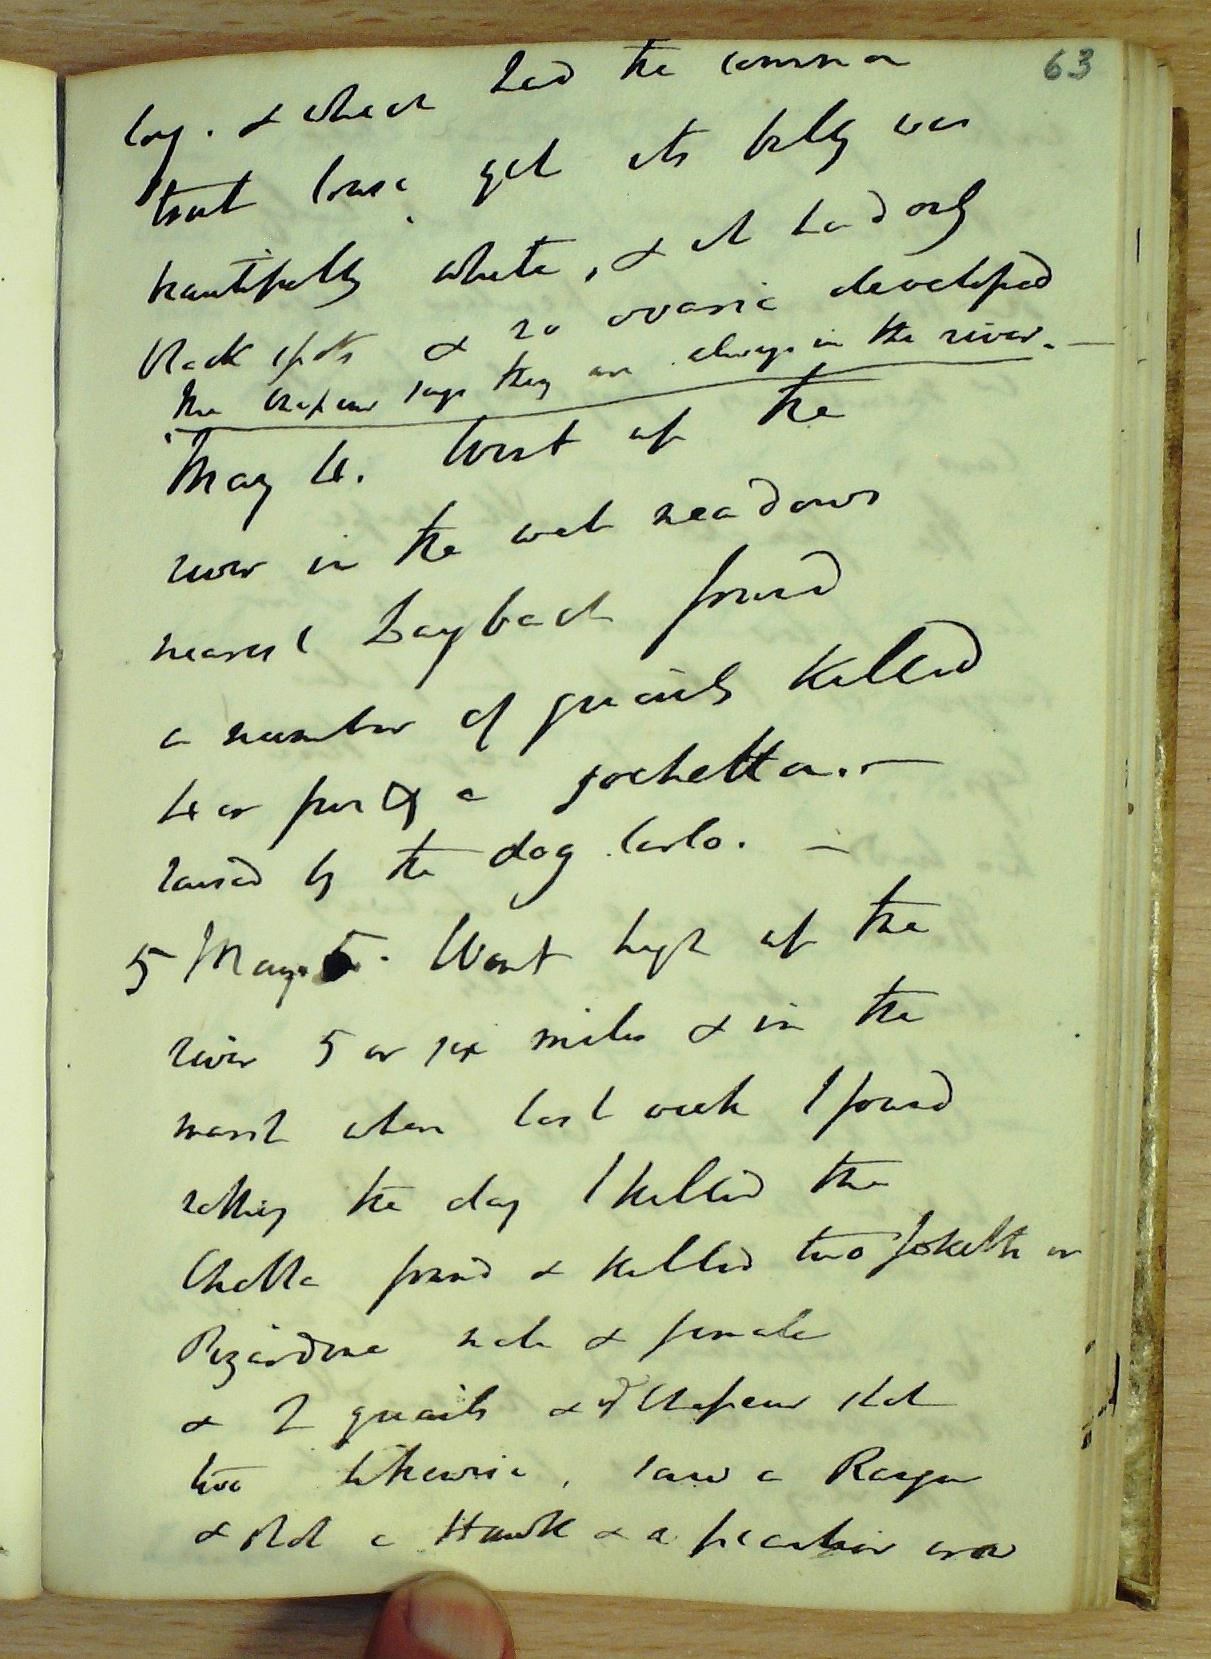 63
long. & which had the common
trout louse yet its belly was
beautifully white, & it had only
black spots & no ovaria developed
The Chasseur says they are always in the river. —
May 4. Went up the
river in the wet meadows
nearest Laybach found
a number of quails killed
4 or five & a sochetta. —
raised by the dog Carlo. —
5 May 5. Went high up the
river 5 or six miles & in the
marsh where last week I found
nothing the day I killed the
found & killed two or
Pizardine male & female
& 2 quails & Chasseur shot
two likewise, saw a
& shot a Hawk & a peculiar crow